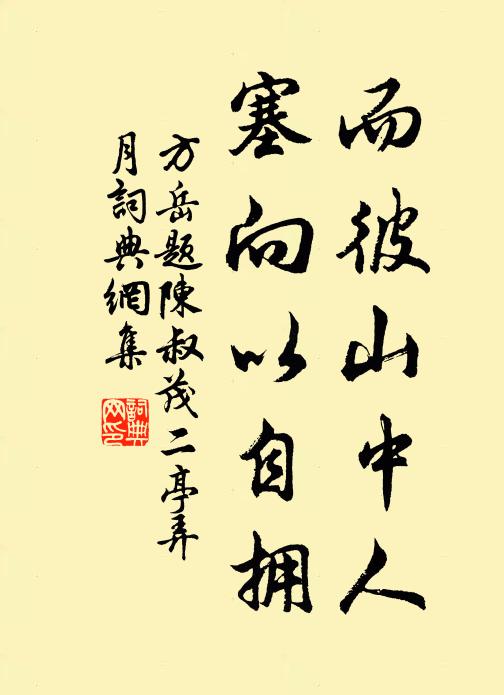 而彼山中人
塞向以自拥
方岳题陳叔茂二亭弄
月詞典網集
詞典
网印